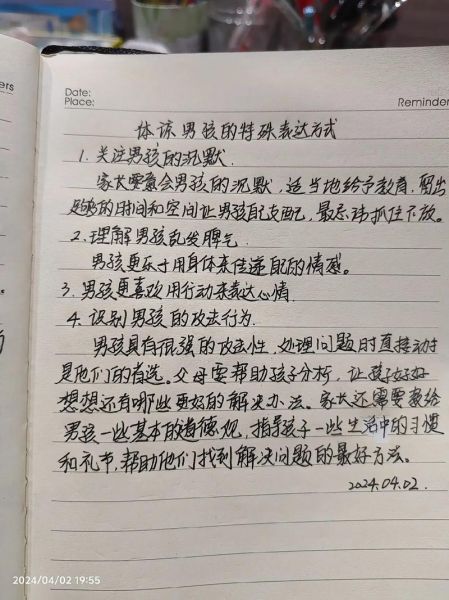 ers
Date:
Place:
Reminder
体谅男孩的特殊表达方式
1. 关注男孩的沉默.
家长要意会男孩的沉默,适当地给予教育,留出
足够的时间和空间让男孩自己支配,最忌讳抓住不放。
2. 理解男孩乱发脾气.
男孩更乐于用身体来传递自己的情感。
3. 男孩更喜欢用行动来表达心情.
4. 识别男孩的攻击行为.
男孩具有很强的攻击性,处理问题时直接动手
是他们的首选。父母要帮助孩子分析,让孩子好好
想想还有哪些更好的解决办法。家长还需要教给
男孩一些基本的道德观,指导孩子一些生活中的习惯
和礼节,帮助他们找到解决问题的最好方法。
2024.04.02.
2024/04/02 19:55